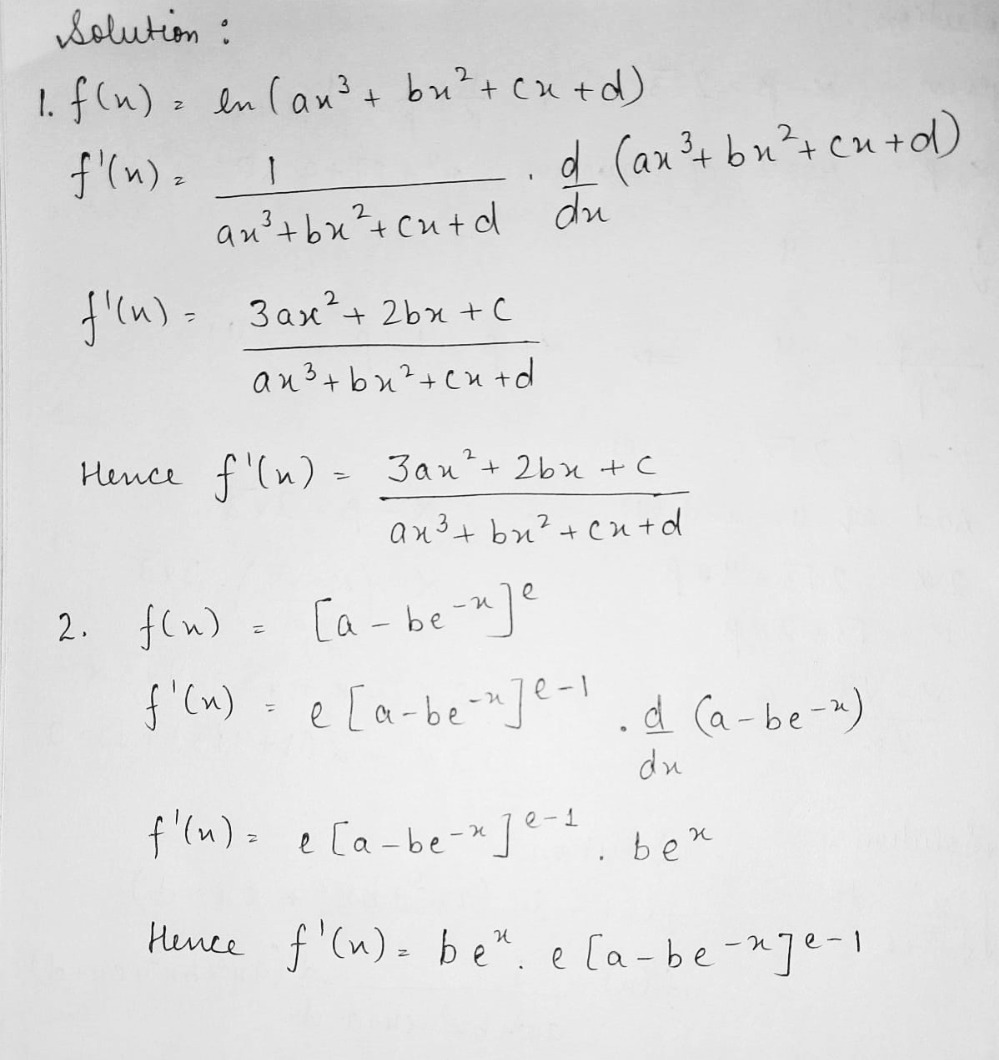 Solution :
1. f(x) = ln (ax³ + bx² + cx + d)
f'(x) = 1 / (ax³ + bx² + cx + d) . d/dx (ax³ + bx² + cx + d)
f'(x) = (3ax² + 2bx + c) / (ax³ + bx² + cx + d)
Hence f'(x) = (3ax² + 2bx + c) / (ax³ + bx² + cx + d)
2. f(x) = [a - be^-x]^e
f'(x) = e [a - be^-x]^e-1 . d/dx (a - be^-x)
f'(x) = e [a - be^-x]^e-1 . be^x
Hence f'(x) = be^x . e [a - be^-x]^e-1